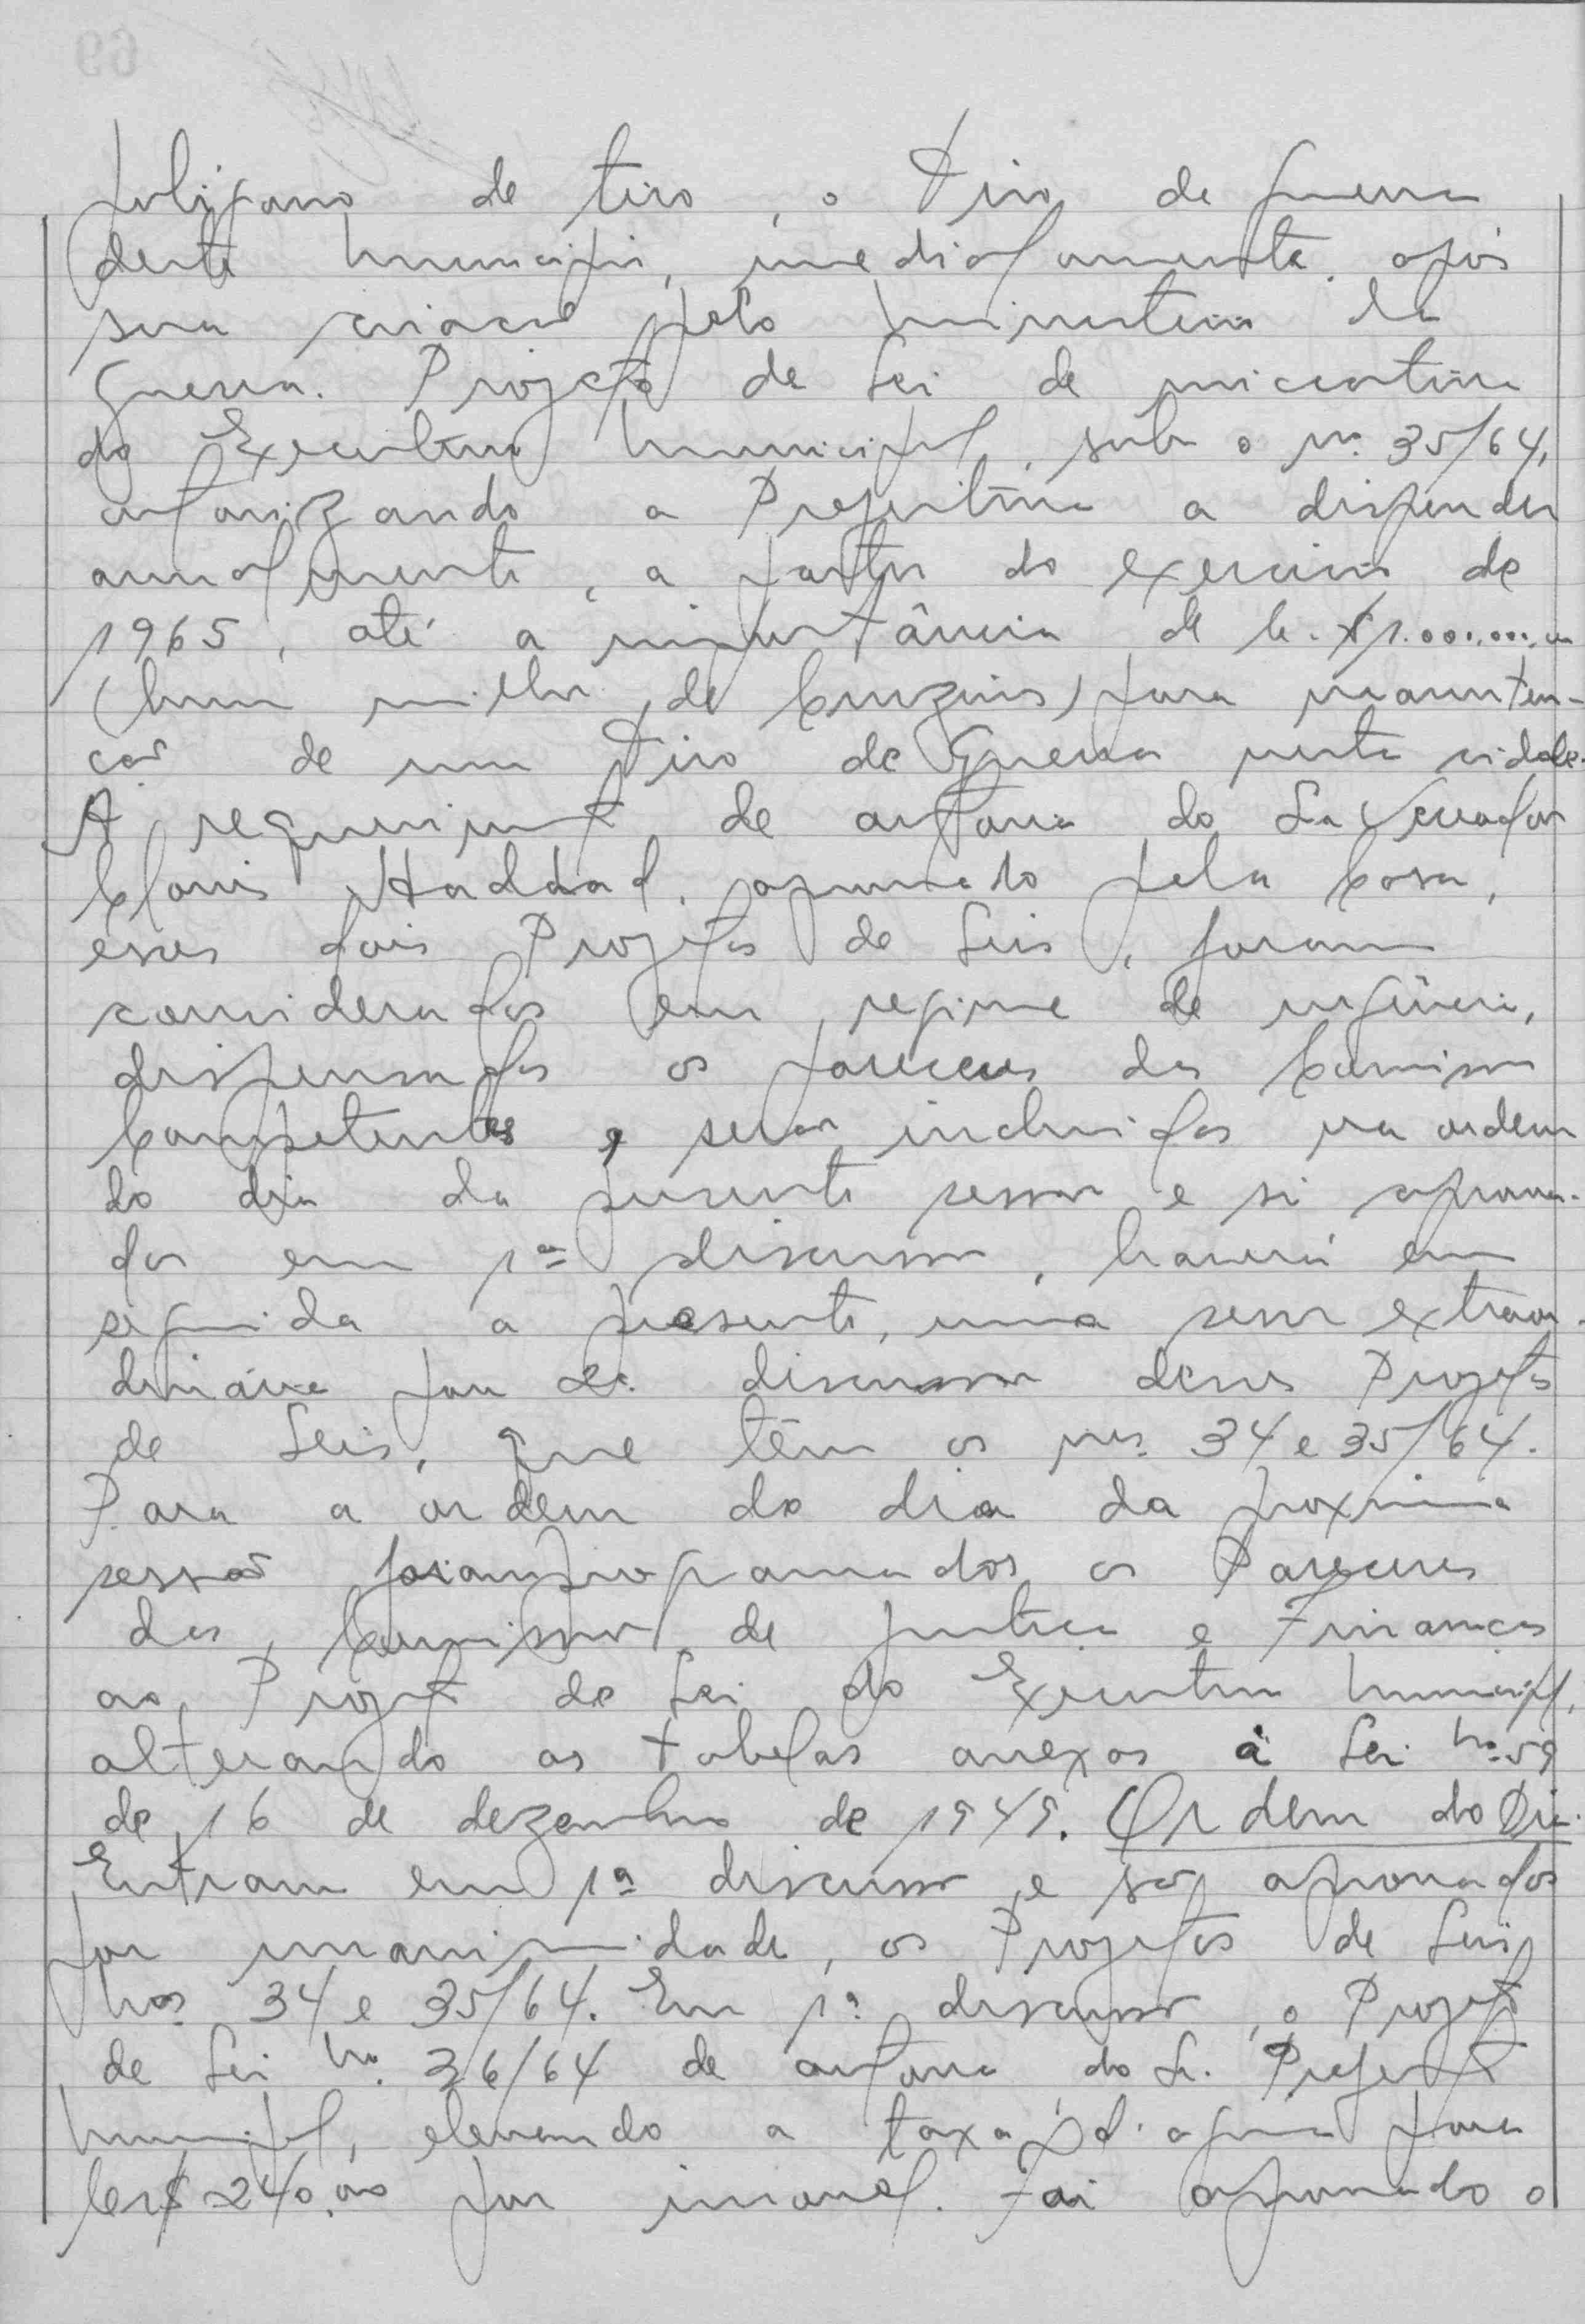 poligano de tiro, o Tiro de Guerra
deste municipio, imediatamente após
sua criação pelo ministerio da
Guerra. Projeto de Lei de iniciativa
do Executivo municipal, sob o nº 35/64,
autorizando a Prefeitura a dispender
anualmente, a partir do exercicio de
1965, até a importância de Cr.$ 1.000.000,00
(hum milhão de Cruzeiros) para manuten-
ção de um Tiro de Guerra nesta cidade.
A requerimento de autoria do Sr. Vereador
Clovis Haddad, aprovado pela Casa,
esses dois Projetos de Leis, foram
considerados em regime de urgência,
dispensados os pareceres das Comissões
Competentes e serão incluidos na ordem
do dia da presente sessão e si aprova-
dos em 1ª discussão, haverá em
seguida a presente, uma sessão extraor-
dinária para 2ª discussão desses Projetos
de Leis, que têm os nos. 34 e 35/64.
Para a ordem do dia da proxima
sessão foram programados os Pareceres
das Comissões de Justiça e Finanças
ao Projeto de Lei do Executivo municipal,
alterando as tabelas anexas à Lei nº 59
de 16 de dezembro de 1949. Ordem do Dia.
Entram em 1ª discussão e são aprovados
por unanimidade, os Projetos de Leis
nos 34 e 35/64. Em 1ª discussão, o Projeto
de Lei nº. 36/64 de autoria do Sr. Prefeito
municipal, elevando a taxa d'agua para
Cr$ 240,00 por imovel. Foi aprovado o